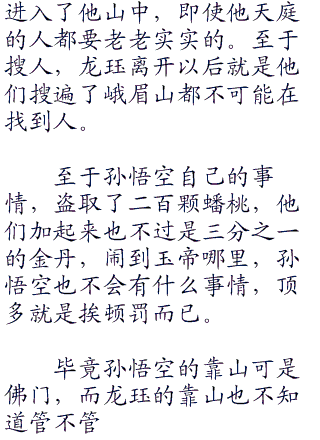 进入了他山中，即使他天庭
的人都要老老实实的。至于
搜人，龙珏离开以后就是他
们搜遍了峨眉山都不可能在
找到人。
至于孙悟空自己的事
情，盗取了二百颗蟠桃，他
们加起来也不过是三分之一
的金丹，闹到玉帝哪里，孙
悟空也不会有什么事情，顶
多就是挨顿罚而已。
毕竟孙悟空的靠山可是
佛门，而龙珏的靠山也不知
道管不管